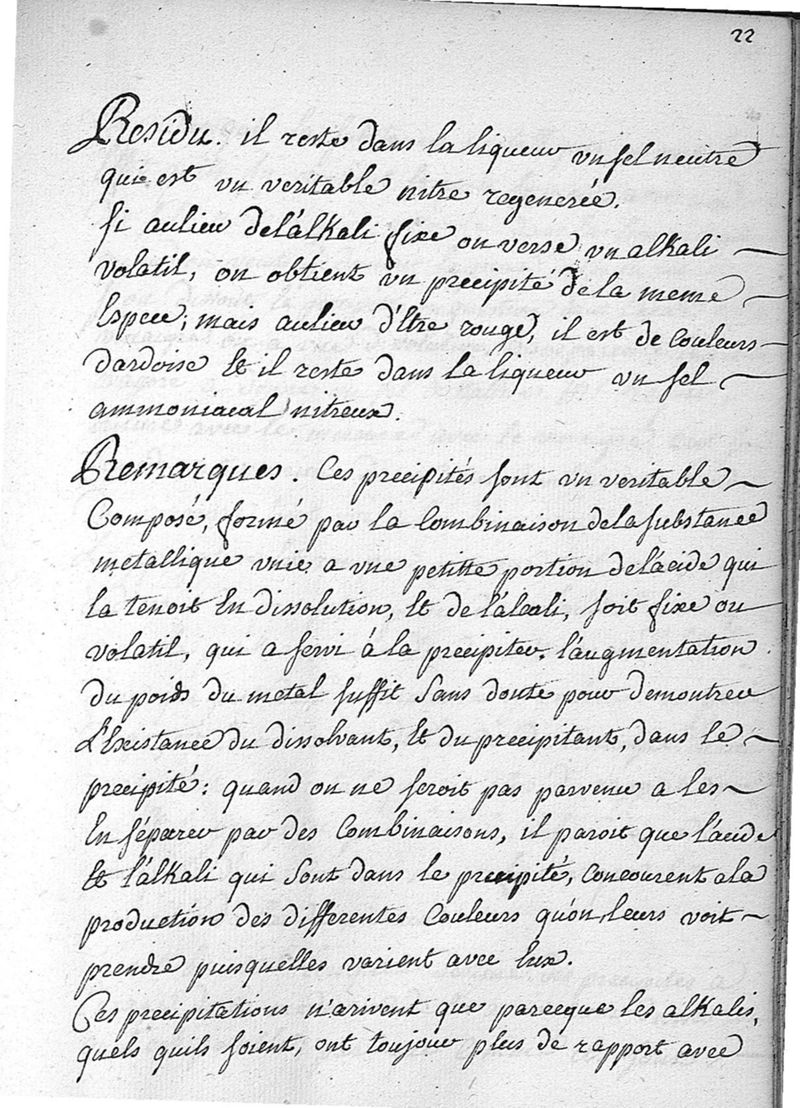 22
Residu. il reste dans la liqueur un sel neutre
qui est un veritable nitre regenerée.
si aulieu de l'alkali fixe on verse un alkali
volatil, on obtient un precipité de la meme
Espece; mais aulieu d'Etre rouge, il est de couleurs
dardoise Et il reste dans la liqueur un sel
ammoniacal nitreux.
Remarques. Ces precipités sont un veritable
Composé, formé par la Combinaison de la substance
metallique unie a une petitte portion de l'acide qui
la tenoit En dissolution, Et de l'alcali, soit fixe ou
volatil, qui a servi à la precipiter. l'augmentation
du poids du metal suffit sans doute pour demontrer
L'Existance du dissolvant, Et du precipitant, dans le
precipité: quand on ne seroit pas parvenu a les
En séparer par des Combinaisons, il paroit que l'acide
Et l'alkali qui sont dans le precipité, concourent a la
production des differentes Couleurs qu'on leurs voit
prendre puisquelles varient avec Eux.
Ces precipitations n'arivent que parceque les alkalis,
quels quils soient, ont toujour plus de rapport avec